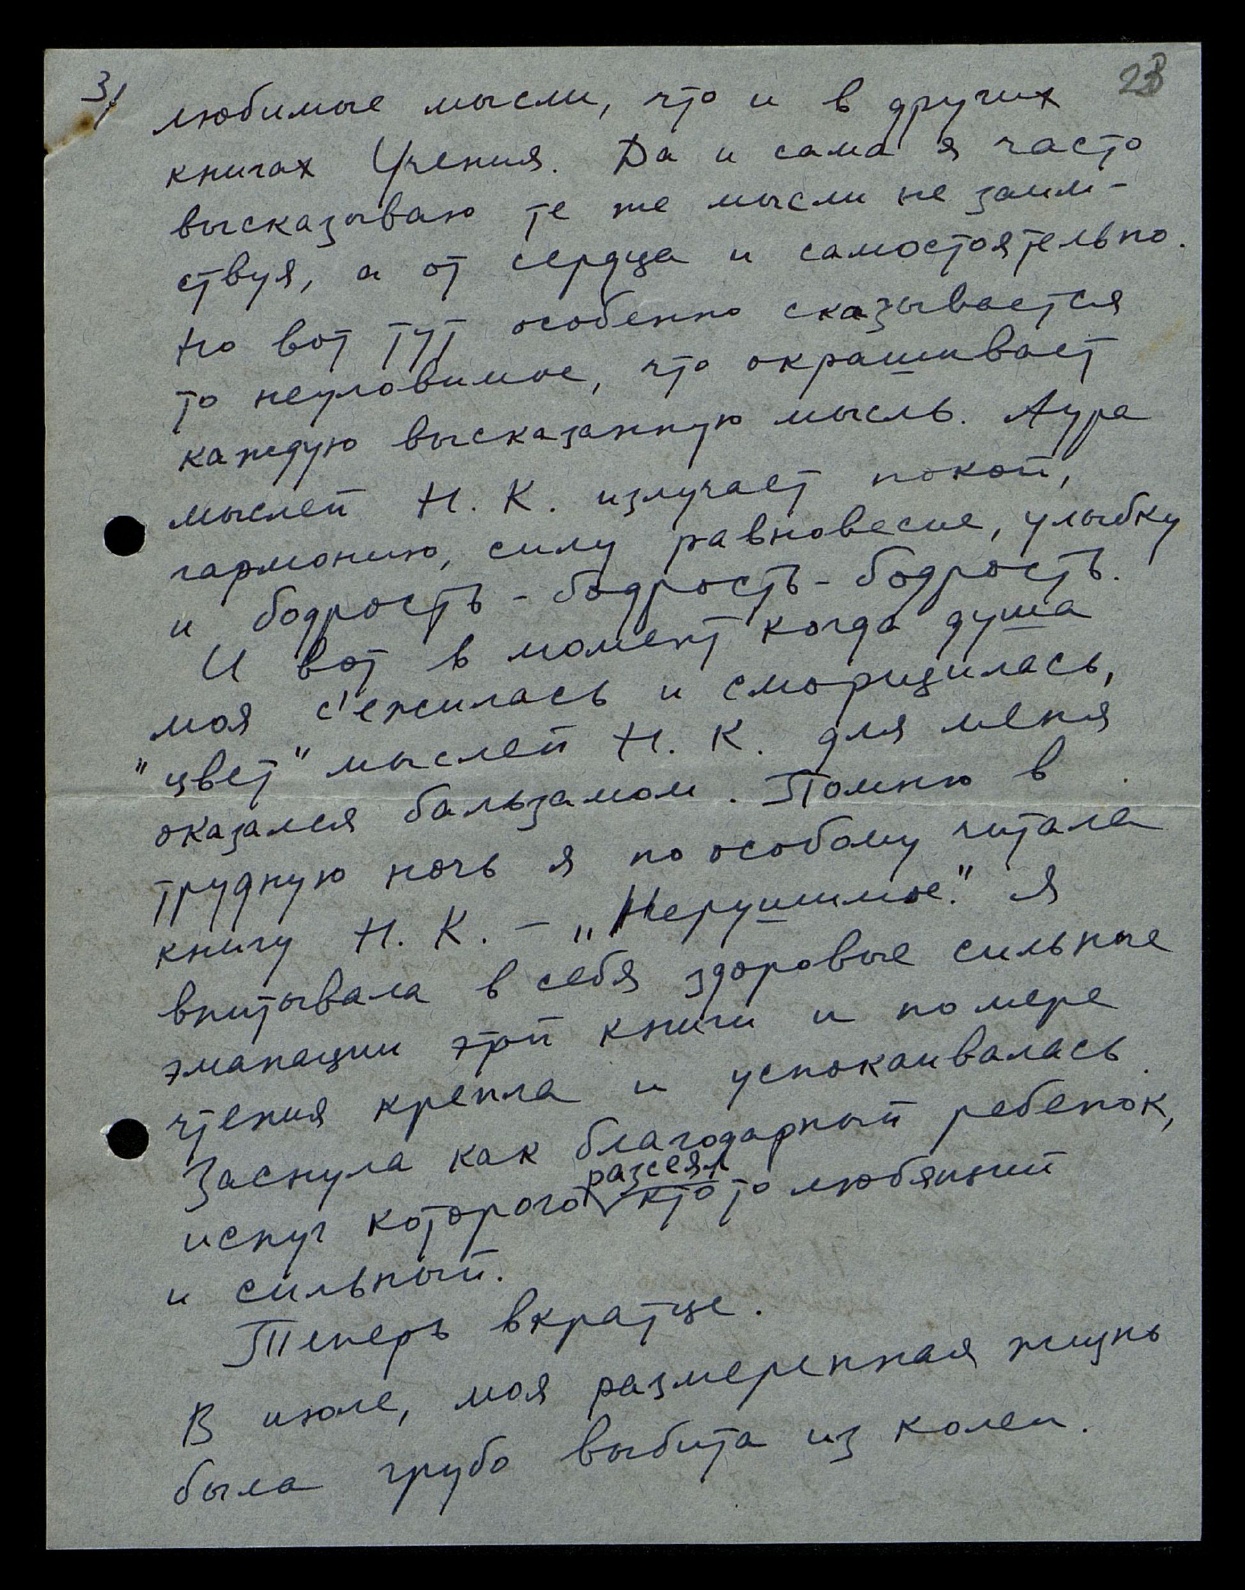 3/
23
любимые мысли, что и в других
книгах Учения. Да и сама я часто
высказываю те же мысли не заим-
ствуя, а от сердца и самостоятельно.
Но вот тут особенно сказывается
то неуловимое, что окрашивает
каждую высказанную мысль. Аура
мыслей Н. К. излучает покой,
гармонию, силу равновесие, улыбку
и бодрость - бодрость - бодрость.
И вот в момент когда душа
моя с'ежилась и сморщилась,
"цвет" мыслей Н. К. для меня
оказался бальзамом. Помню в
трудную ночь я по особому читала
книгу Н. К. – „Нерушимое". Я
впитывала в себя здоровые сильные
эманации этой книги и по мере
чтения крепла и успокаивалась.
Заснула как благодарный ребенок,
разсеял
испуг которого кто то любящий
и сильный.
Теперь вкратце.
В июле, моя размеренная жизнь
была грубо выбита из колеи.